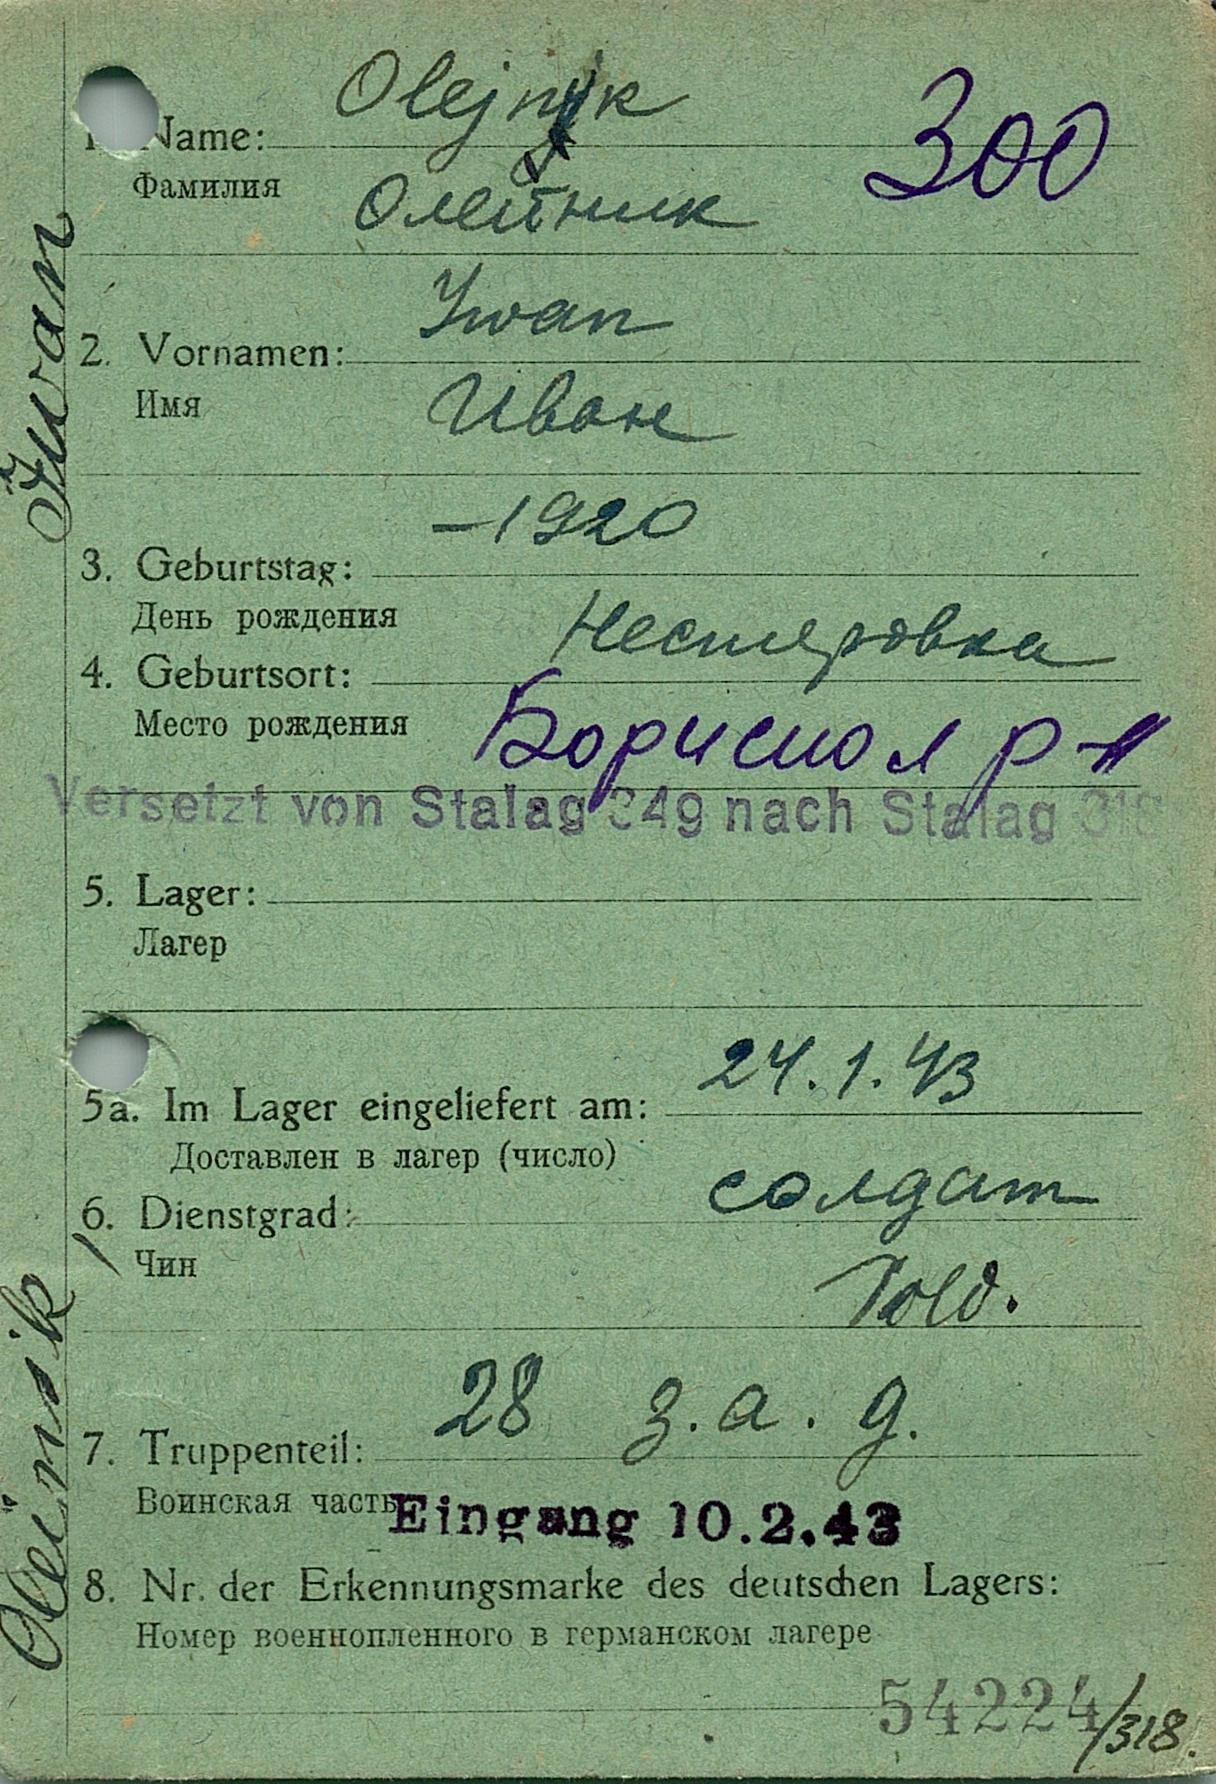 Olejnik
300
1. Name:
Фамилия
Олейник
Iwan
2. Vornamen:
Имя
Иван
-1920
3. Geburtstag:
День рождения
Нестеровка
4. Geburtsort:
Место рождения
Бориспол р-н
Versetzt von Stalag 349 nach Stalag 318
5. Lager:
Лагер
24.1.43
5a. Im Lager eingeliefert am:
Доставлен в лагер (число)
солдат
6. Dienstgrad:
Чин
Sold.
28 з.а.д.
7. Truppenteil:
Воинская часть
Eingang 10.2.43
8. Nr. der Erkennungsmarke des deutschen Lagers:
Номер военнопленного в германском лагере
54224/318.
Oleinik / Iwan